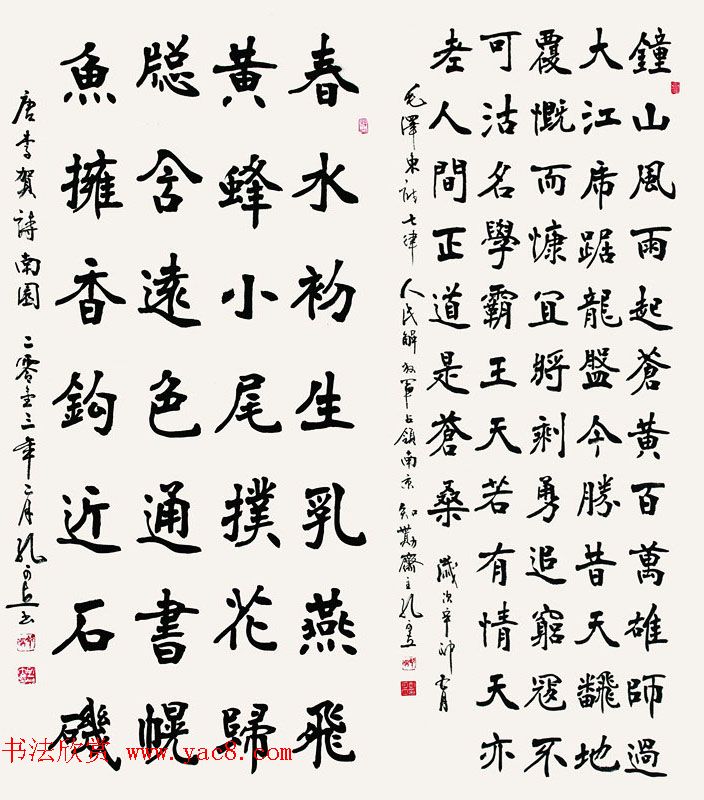 鐘山風雨起蒼黃百萬雄師過
大江虎踞龍盤今勝昔天飜地
覆慨而慷宜將剩勇追窮寇不
可沽名學霸王天若有情天亦
老人間正道是蒼桑 歲次辛卯 月
毛澤東詩七律 人民解放軍占領南京 知 齋主孔可立
春水初生乳燕飛
黃蜂小尾撲花歸
窻含遠色通書幌
魚擁香鉤近石磯
唐李賀詩南園 二零壹三年二月孔可立書
书法欣赏 www.yac8.com